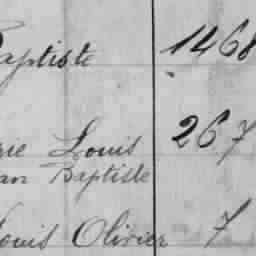 Baptiste 1468
rie Louis 267
an Baptiste
Louis Olivier 7